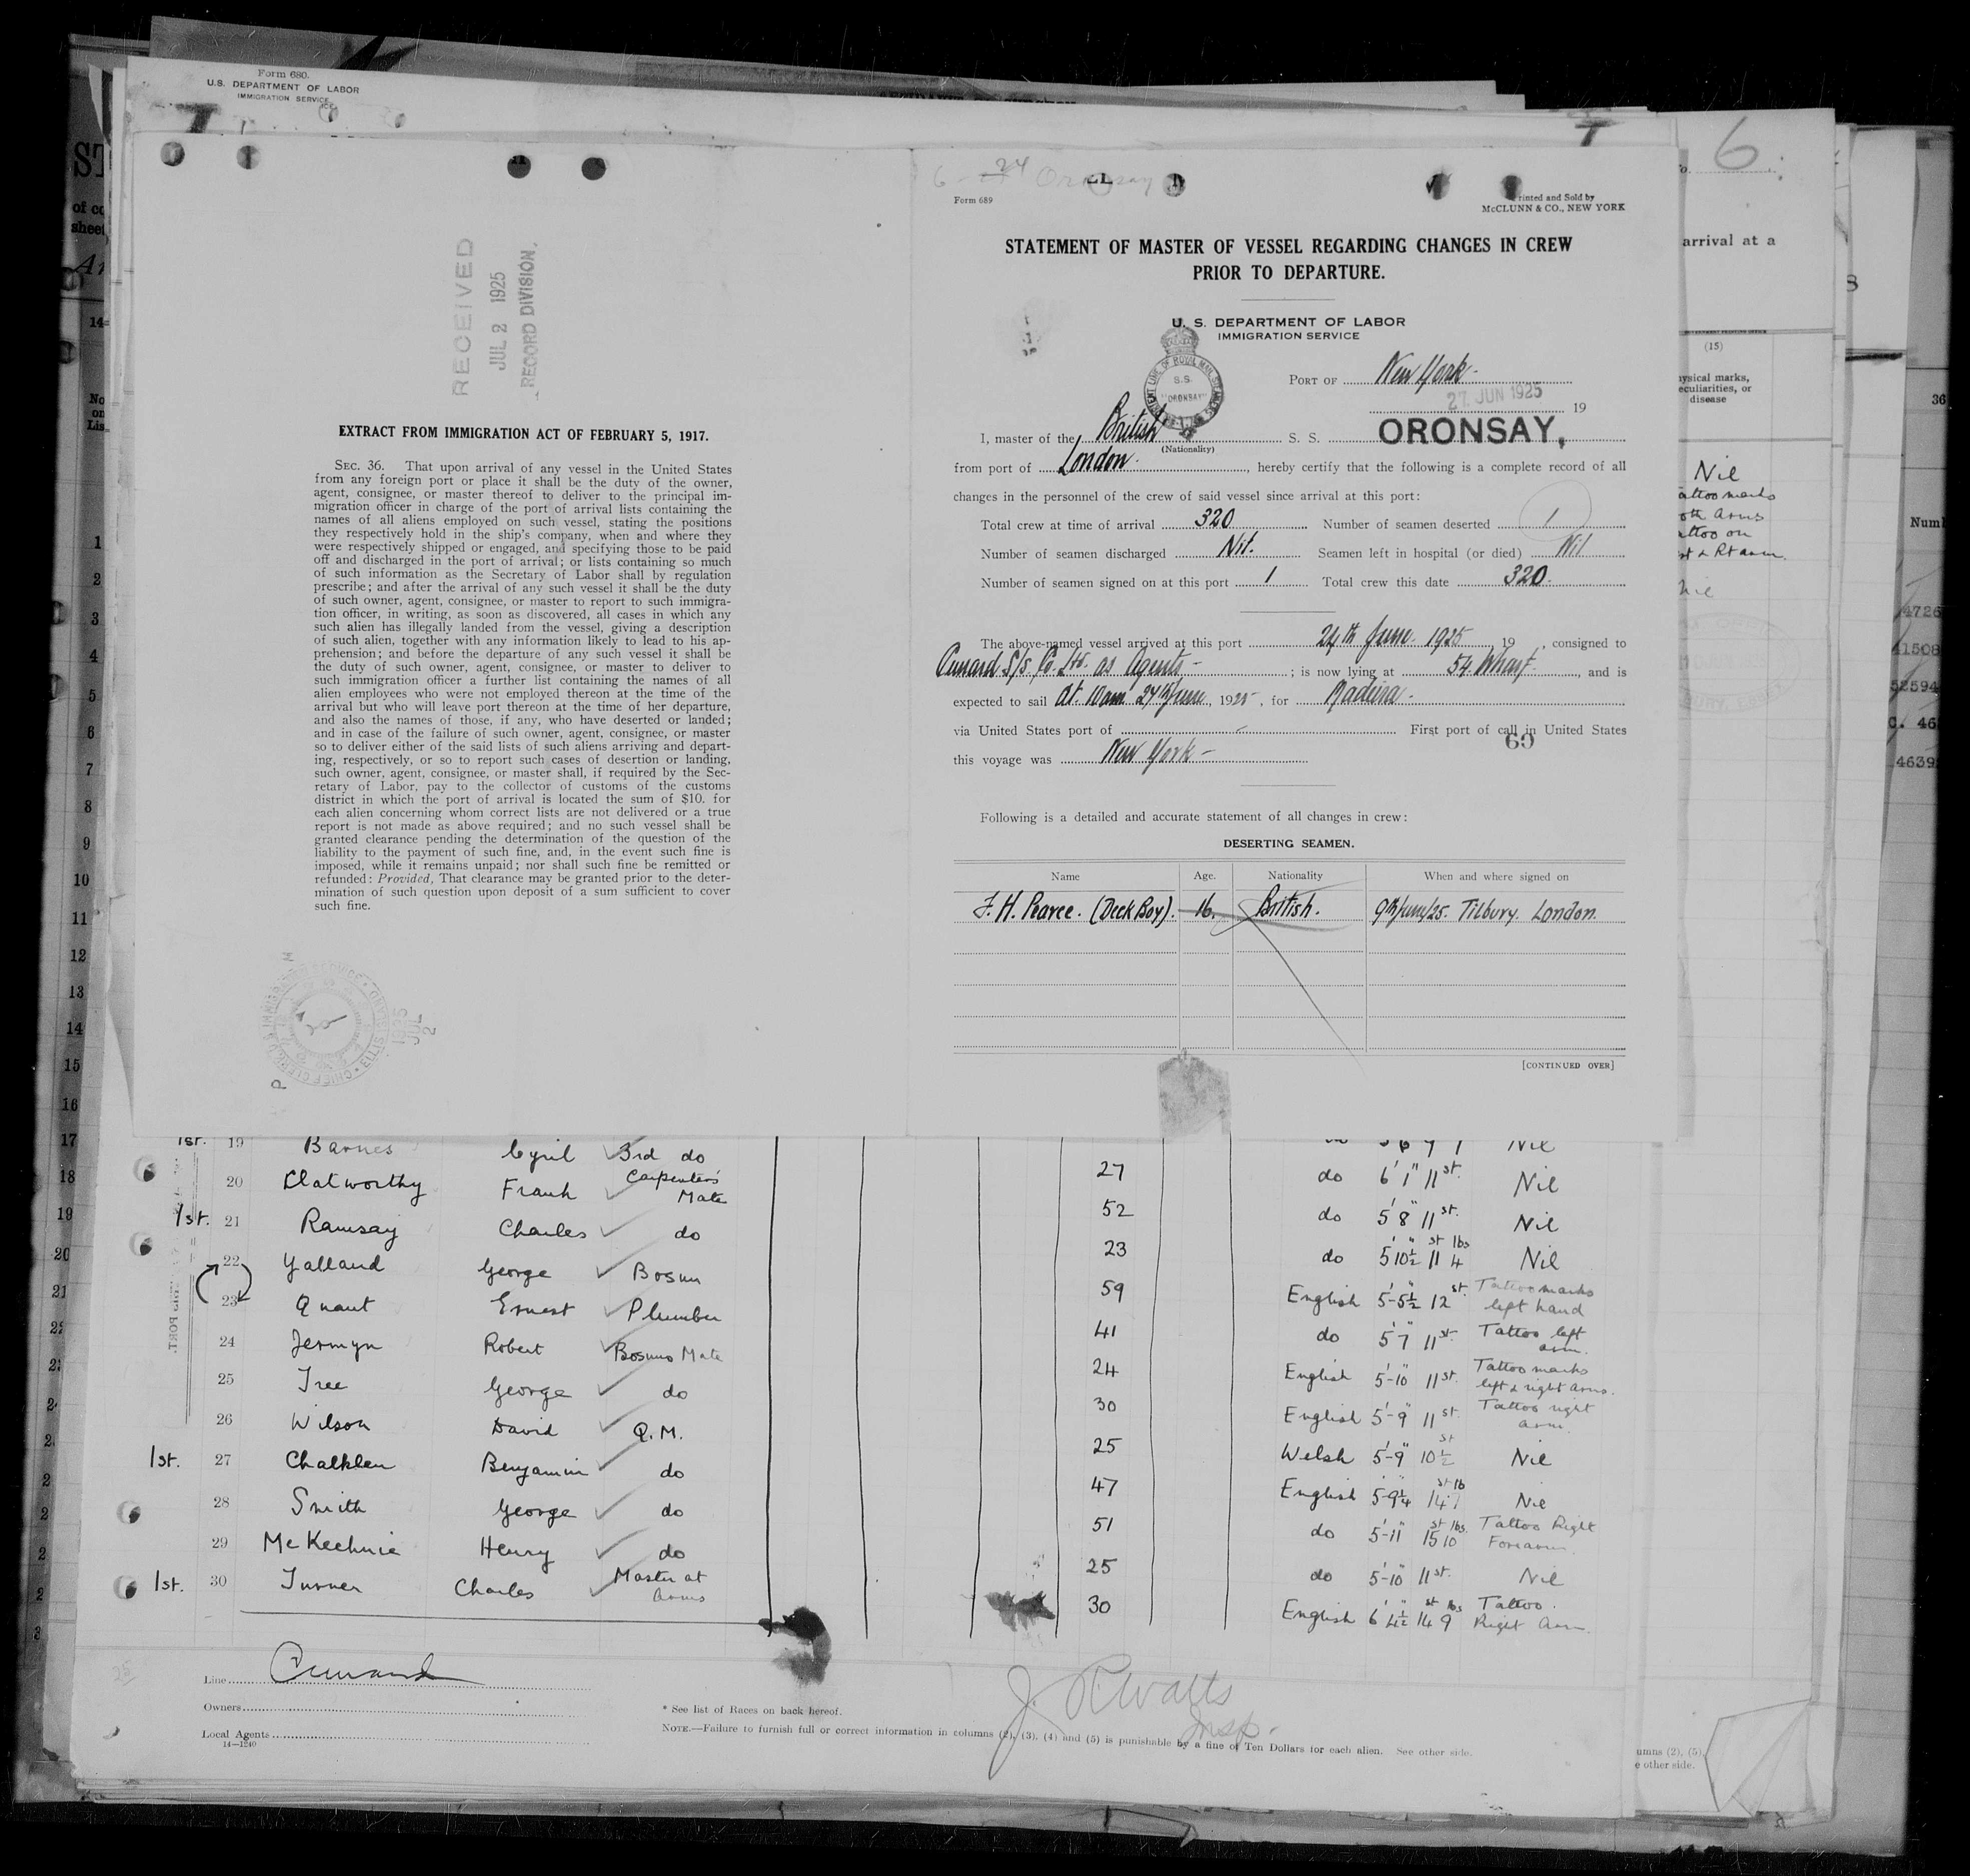 Form 680.
U.S. DEPARTMENT OF LABOR
IMMIGRATION SERVICE
RECEIVED
JUL 2 1925
RECORD DIVISION.
EXTRACT FROM IMMIGRATION ACT OF FEBRUARY 5, 1917.
SEC. 36. That upon arrival of any vessel in the United States
from any foreign port or place it shall be the duty of the owner,
agent, consignee, or master thereof to deliver to the principal im-
migration officer in charge of the port of arrival lists containing the
names of all aliens employed on such vessel, stating the positions
they respectively hold in the ship's company, when and where they
were respectively shipped or engaged, and specifying those to be paid
off and discharged in the port of arrival; or lists containing so much
of such information as the Secretary of Labor shall by regulation
prescribe; and after the arrival of any such vessel it shall be the duty
of such owner, agent, consignee, or master to report to such immigra-
tion officer, in writing, as soon as discovered, all cases in which any
such alien has illegally landed from the vessel, giving a description
of such alien, together with any information likely to lead to his ap-
prehension; and before the departure of any such vessel it shall be
the duty of such owner, agent, consignee, or master to deliver to
such immigration officer a further list containing the names of all
alien employees who were not employed thereon at the time of the
arrival but who will leave port thereon at the time of her departure,
and also the names of those, if any, who have deserted or landed;
and in case of the failure of such owner, agent, consignee, or master
so to deliver either of the said lists of such aliens arriving and depart-
ing, respectively, or so to report such cases of desertion or landing,
such owner, agent, consignee, or master shall, if required by the Sec-
retary of Labor, pay to the collector of customs of the customs
district in which the port of arrival is located the sum of $10. for
each alien concerning whom correct lists are not delivered or a true
report is not made as above required; and no such vessel shall be
granted clearance pending the determination of the question of the
liability to the payment of such fine, and, in the event such fine is
imposed, while it remains unpaid; nor shall such fine be remitted or
refunded: Provided, That clearance may be granted prior to the deter-
mination of such question upon deposit of a sum sufficient to cover
such fine.
6 - 24 Oronsay
Form 689
Printed and Sold by
McCLUNN & CO., NEW YORK
STATEMENT OF MASTER OF VESSEL REGARDING CHANGES IN CREW
PRIOR TO DEPARTURE.
U. S. DEPARTMENT OF LABOR
IMMIGRATION SERVICE
ORIENT LINE OF ROYAL MAIL STEAMERS
S.S.
"ORONSAY"
PORT OF New York
27 JUN 1925 19
I, master of the British S. S. ORONSAY,
(Nationality)
from port of London, hereby certify that the following is a complete record of all
changes in the personnel of the crew of said vessel since arrival at this port:
Total crew at time of arrival 320 Number of seamen deserted 1
Number of seamen discharged Nil. Seamen left in hospital (or died) Nil
Number of seamen signed on at this port 1 Total crew this date 320.
The above-named vessel arrived at this port 24th June. 1925 19 , consigned to
Cunard S/S. Co. Ltd. as Agents - ; is now lying at 54 Wharf, and is
expected to sail At. 10am 27th June, 1925, for Madeira.
via United States port of - First port of call in United States
69
this voyage was New York -
Following is a detailed and accurate statement of all changes in crew:
DESERTING SEAMEN.
Name Age. Nationality When and where signed on
F. H. Pearce. (Deck Boy). 16. British. 9th June/25. Tilbury. London
[CONTINUED OVER]
6
arrival at a
(15)
ysical marks,
eculiarities, or
disease
Nil
attoo marks
oth Arms
attoo on
Nil
1st. 19 Barnes Cyril 3rd do Nil
20 Clatworthy Frank Carpenter's Mate 27 do 6'1" 11st. Nil
1st. 21 Ramsay Charles do 52 do 5'8" 11st. Nil
22 Yalland George Bosun 23 do 5'10½" 11st 4lbs Nil
23 Quant Ernest Plumber 59 English 5'-5½" 12st. Tattoo marks left hand
24 Jermyn Robert Bosuns Mate 41 do 5'-7" 11st. Tattoo left arm.
25 Tree George do 24 English 5'-10" 11st. Tattoo marks left & right arms.
26 Wilson David Q.M. 30 English 5'-9" 11st. Tattoo right arm
1st. 27 Chalklen Benjamin do 25 Welsh 5'-9" 10½st Nil
28 Smith George do 47 English 5'-9¼" 14st 7lb Nil
29 McKechnie Henry do 51 do 5'-11" 15st 10lbs. Tattoo Right Forearm
1st. 30 Turner Charles Master at Arms 25 do 5'-10" 11st. Nil
30 English 6'4½" 14st 9lbs Tattoo. Right Arm.
Line Cunard
Owners
Local Agents
14—1240
* See list of Races on back hereof.
NOTE.—Failure to furnish full or correct information in columns (2), (3), (4) and (5) is punishable by a fine of Ten Dollars for each alien. See other side.
J. R. Watts
Insp.
umns (2), (5)
e other side.